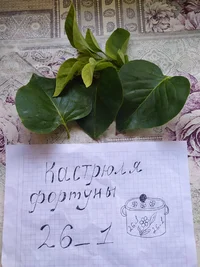 Кастрюля
фортуны
26_1